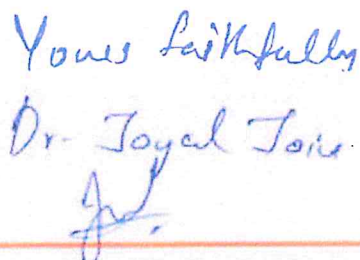 Yours faithfully
Dr. Joyal Joine